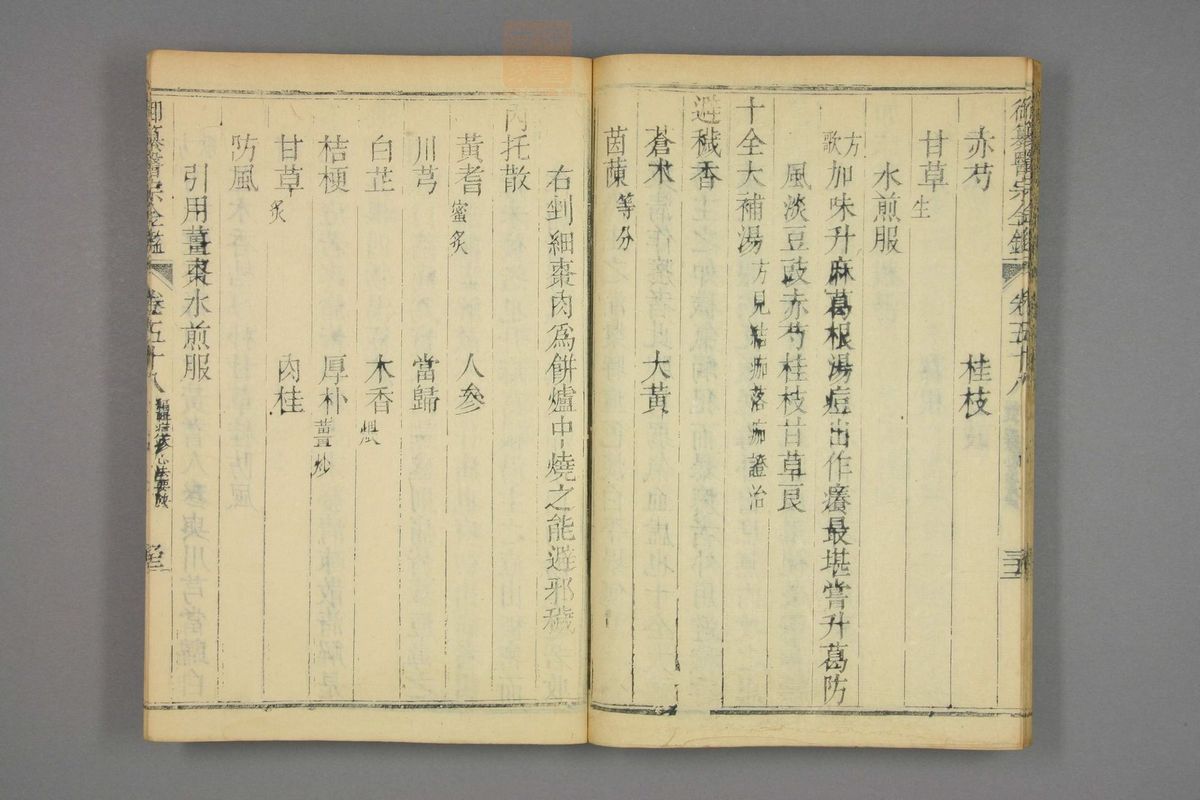 御纂醫宗金鑑 卷五十八
赤芍 桂枝
甘草生
水煎服
方歌 加味升麻葛根湯痘出作癢最堪嘗升葛防
風淡豆豉赤芍桂枝甘草良
十全大補湯 方見結痂落痂證治
避穢香
蒼朮 大黃
茵蔯等分
右剉細棗肉爲餅爐中燒之能避邪穢
內托散
黃耆蜜炙 人參
川芎 當歸
白芷 木香煨
桔梗 厚朴薑炒
甘草炙 肉桂
防風
引用薑棗水煎服
御纂醫宗金鑑 卷五十八 心法要訣